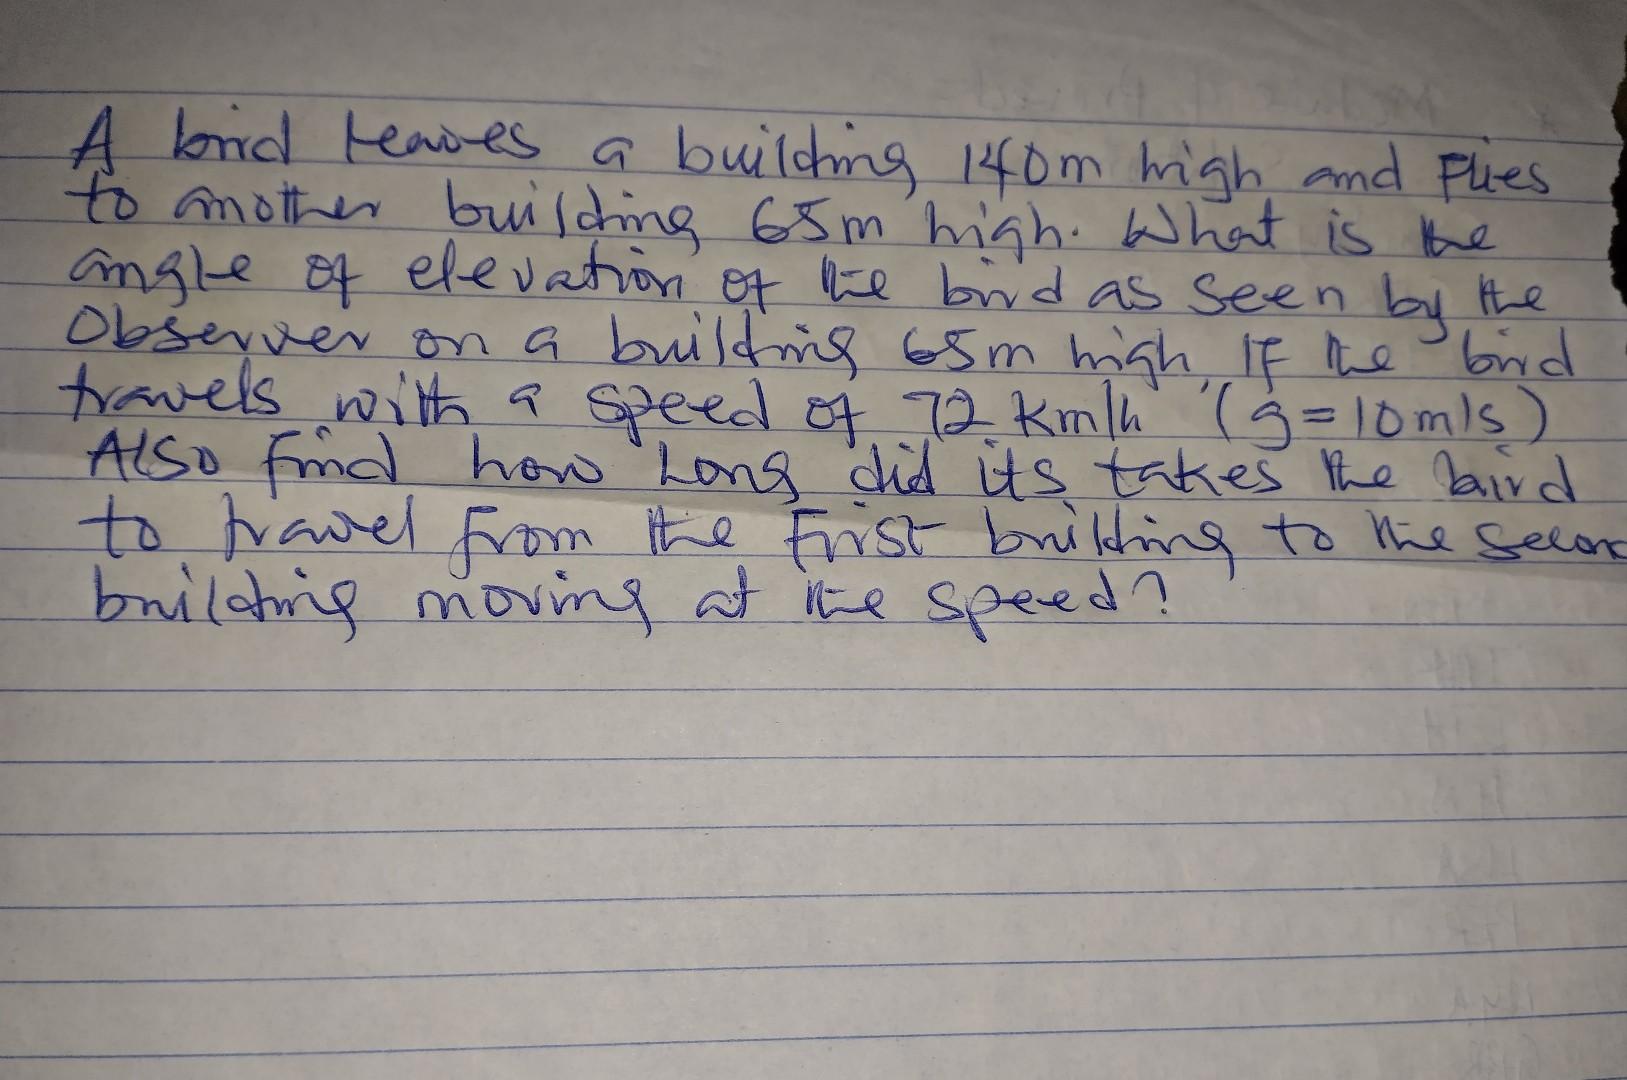 A bird leaves a building 140m high and flies
to another building 65m high. What is the
angle of elevation of the bird as seen by the
Observer on a building 65m high, If the bird
travels with a speed of 72 km/h (g=10m/s)
Also find how Long did its takes the baird
to travel from the first building to the second
building moving at the speed?